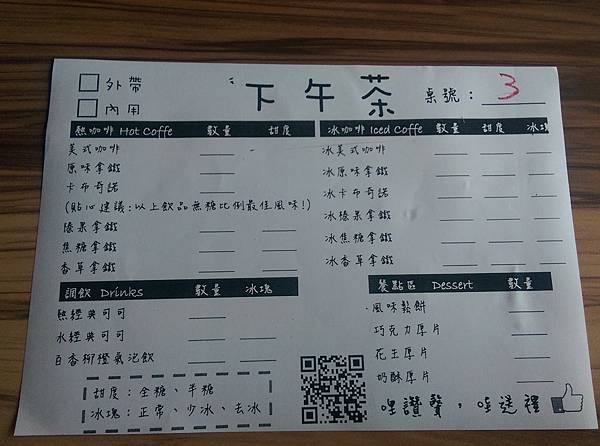 外帶
內用
下午茶
桌號：3
熱咖啡 Hot Coffe 數量 甜度
美式咖啡
原味拿鐵
卡布奇諾
(貼心建議：以上飲品無糖比例最佳風味！)
榛果拿鐵
焦糖拿鐵
香草拿鐵
冰咖啡 Iced Coffe 數量 甜度 冰塊
冰美式咖啡
冰原味拿鐵
冰卡布奇諾
冰榛果拿鐵
冰焦糖拿鐵
冰香草拿鐵
調飲 Drinks 數量 冰塊
熱經典可可
冰經典可可
百香柳橙氣泡飲
甜度：全糖、半糖
冰塊：正常、少冰、去冰
餐點區 Dessert 數量
風味鬆餅
巧克力厚片
花生厚片
奶酥厚片
哩讚聲，哇送禮